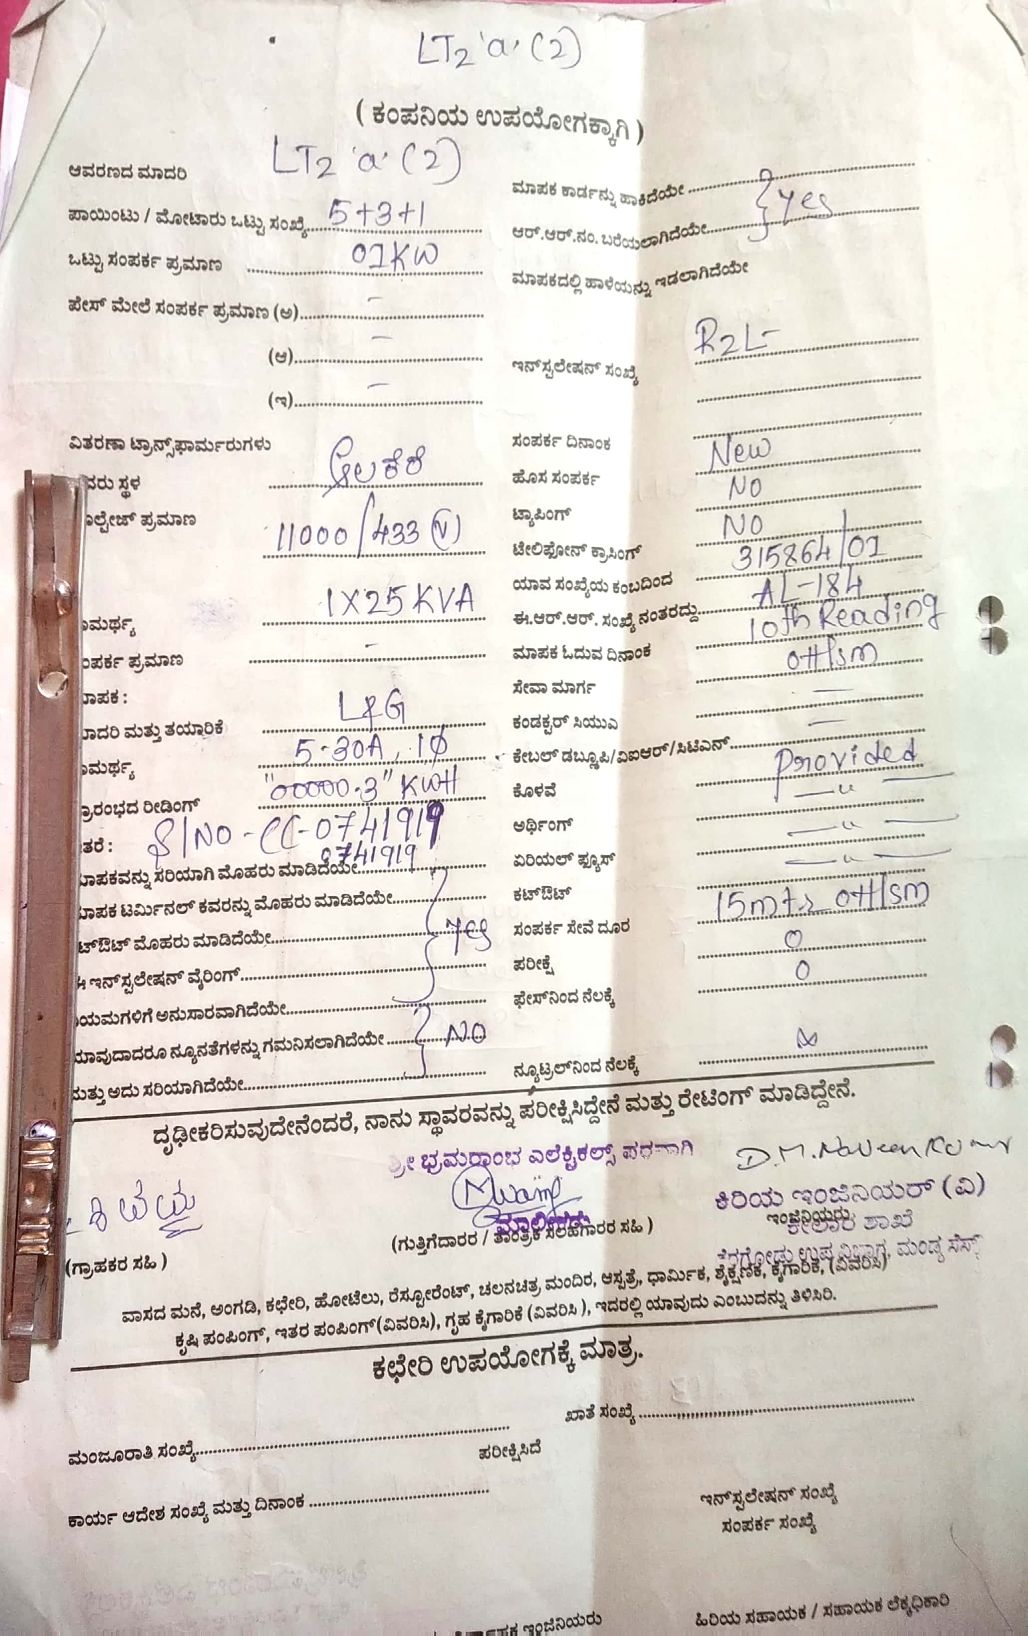 LT2 'a' (2)
( ಕಂಪನಿಯ ಉಪಯೋಗಕ್ಕಾಗಿ )
ಆವರಣದ ಮಾದರಿ LT2 'a' (2)
ಪಾಯಿಂಟು / ಮೋಟಾರು ಒಟ್ಟು ಸಂಖ್ಯೆ 5+3+1
ಒಟ್ಟು ಸಂಪರ್ಕ ಪ್ರಮಾಣ 01KW
ಪೇಸ್ ಮೇಲೆ ಸಂಪರ್ಕ ಪ್ರಮಾಣ (ಅ) –
(ಆ) –
(ಇ) –
ವಿತರಣಾ ಟ್ರಾನ್ಸ್‌ಫಾರ್ಮರುಗಳು
ವರು ಸ್ಥಳ
ಾಲ್ಟೇಜ್ ಪ್ರಮಾಣ 11000/433 (V)
ಾಮರ್ಥ್ಯ 1X25KVA
ಂಪರ್ಕ ಪ್ರಮಾಣ –
ಾಪಕ :
ಾದರಿ ಮತ್ತು ತಯಾರಿಕೆ L&G
ಾಮರ್ಥ್ಯ 5-30A, 1Ø
್ರಾರಂಭದ ರೀಡಿಂಗ್ "00000.3" KWH
ತರೆ : S/NO-CC-0741919
0741919
ಾಪಕವನ್ನು ಸರಿಯಾಗಿ ಮೊಹರು ಮಾಡಿದೆಯೇ
ಾಪಕ ಟರ್ಮಿನಲ್ ಕವರನ್ನು ಮೊಹರು ಮಾಡಿದೆಯೇ
ಟ್‌ಔಟ್ ಮೊಹರು ಮಾಡಿದೆಯೇ Yes
ಈ ಇನ್‌ಸ್ಟಲೇಷನ್ ವೈರಿಂಗ್
ಯಮಗಳಿಗೆ ಅನುಸಾರವಾಗಿದೆಯೇ
ಯಾವುದಾದರೂ ನ್ಯೂನತೆಗಳನ್ನು ಗಮನಿಸಲಾಗಿದೆಯೇ NO
ಮತ್ತು ಅದು ಸರಿಯಾಗಿದೆಯೇ
ಮಾಪಕ ಕಾರ್ಡನ್ನು ಹಾಕಿದೆಯೇ
ಆರ್.ಆರ್.ನಂ. ಬರೆಯಲಾಗಿದೆಯೇ Yes
ಮಾಪಕದಲ್ಲಿ ಹಾಳೆಯನ್ನು ಇಡಲಾಗಿದೆಯೇ
ಇನ್‌ಸ್ಟಲೇಷನ್ ಸಂಖ್ಯೆ R2L-
ಸಂಪರ್ಕ ದಿನಾಂಕ
ಹೊಸ ಸಂಪರ್ಕ New
ಟ್ಯಾಪಿಂಗ್ NO
ಟೇಲಿಫೋನ್ ಕ್ರಾಸಿಂಗ್ NO
ಯಾವ ಸಂಖ್ಯೆಯ ಕಂಬದಿಂದ 315864/01
ಈ.ಆರ್.ಆರ್. ಸಂಖ್ಯೆ ನಂತರದ್ದು AL-184
ಮಾಪಕ ಓದುವ ದಿನಾಂಕ 10th Reading
ಸೇವಾ ಮಾರ್ಗ OH/SM
ಕಂಡಕ್ಟರ್ ಸಿಯುಎ –
ಕೇಬಲ್ ಡಬ್ಲೂಪಿ/ವಿಐಆರ್/ಸಿಟಿಎಸ್ –
ಕೊಳವೆ Provided
ಅರ್ಥಿಂಗ್ — " —
ಏರಿಯಲ್ ಫ್ಯೂಸ್ — " —
ಕಟ್‌ಔಟ್ — " —
ಸಂಪರ್ಕ ಸೇವೆ ದೂರ 15mtr OH/SM
ಪರೀಕ್ಷೆ 0
ಫೇಸ್‌ನಿಂದ ನೆಲಕ್ಕೆ 0
ನ್ಯೂಟ್ರಲ್‌ನಿಂದ ನೆಲಕ್ಕೆ ∞
ದೃಢೀಕರಿಸುವುದೇನೆಂದರೆ, ನಾನು ಸ್ಥಾವರವನ್ನು ಪರೀಕ್ಷಿಸಿದ್ದೇನೆ ಮತ್ತು ರೇಟಿಂಗ್ ಮಾಡಿದ್ದೇನೆ.
ಶ್ರೀ ಭ್ರಮರಾಂಭ ಎಲೆಕ್ಟ್ರಿಕಲ್ಸ್ ಪರವಾಗಿ
ಮಾಲೀಕರು
(ಗುತ್ತಿಗೆದಾರರ / ತಾಂತ್ರಿಕ ಸಲಹೆಗಾರರ ಸಹಿ )
D.M. Naveen Kumar
ಕಿರಿಯ ಇಂಜಿನಿಯರ್ (ವಿ)
ಇಂಜಿನಿಯರು
ಶಾಖೆ
ಉಪ ವಿಭಾಗ, ಮಂಡ್ಯ ಸೆಸ್ಕ್
(ಗ್ರಾಹಕರ ಸಹಿ )
ವಾಸದ ಮನೆ, ಅಂಗಡಿ, ಕಛೇರಿ, ಹೋಟೆಲು, ರೆಸ್ಟೋರೆಂಟ್, ಚಲನಚಿತ್ರ ಮಂದಿರ, ಆಸ್ಪತ್ರೆ, ಧಾರ್ಮಿಕ, ಶೈಕ್ಷಣಿಕ, ಕೈಗಾರಿಕೆ, (ವಿವರಿಸಿ)
ಕೃಷಿ ಪಂಪಿಂಗ್, ಇತರ ಪಂಪಿಂಗ್(ವಿವರಿಸಿ), ಗೃಹ ಕೈಗಾರಿಕೆ (ವಿವರಿಸಿ ), ಇದರಲ್ಲಿ ಯಾವುದು ಎಂಬುದನ್ನು ತಿಳಿಸಿರಿ.
ಕಛೇರಿ ಉಪಯೋಗಕ್ಕೆ ಮಾತ್ರ.
ಖಾತೆ ಸಂಖ್ಯೆ
ಮಂಜೂರಾತಿ ಸಂಖ್ಯೆ
ಪರೀಕ್ಷಿಸಿದೆ
ಕಾರ್ಯ ಆದೇಶ ಸಂಖ್ಯೆ ಮತ್ತು ದಿನಾಂಕ
ಇನ್‌ಸ್ಟಲೇಷನ್ ಸಂಖ್ಯೆ
ಸಂಪರ್ಕ ಸಂಖ್ಯೆ
ಇಂಜಿನಿಯರು
ಹಿರಿಯ ಸಹಾಯಕ / ಸಹಾಯಕ ಲೆಕ್ಕಧಿಕಾರಿ